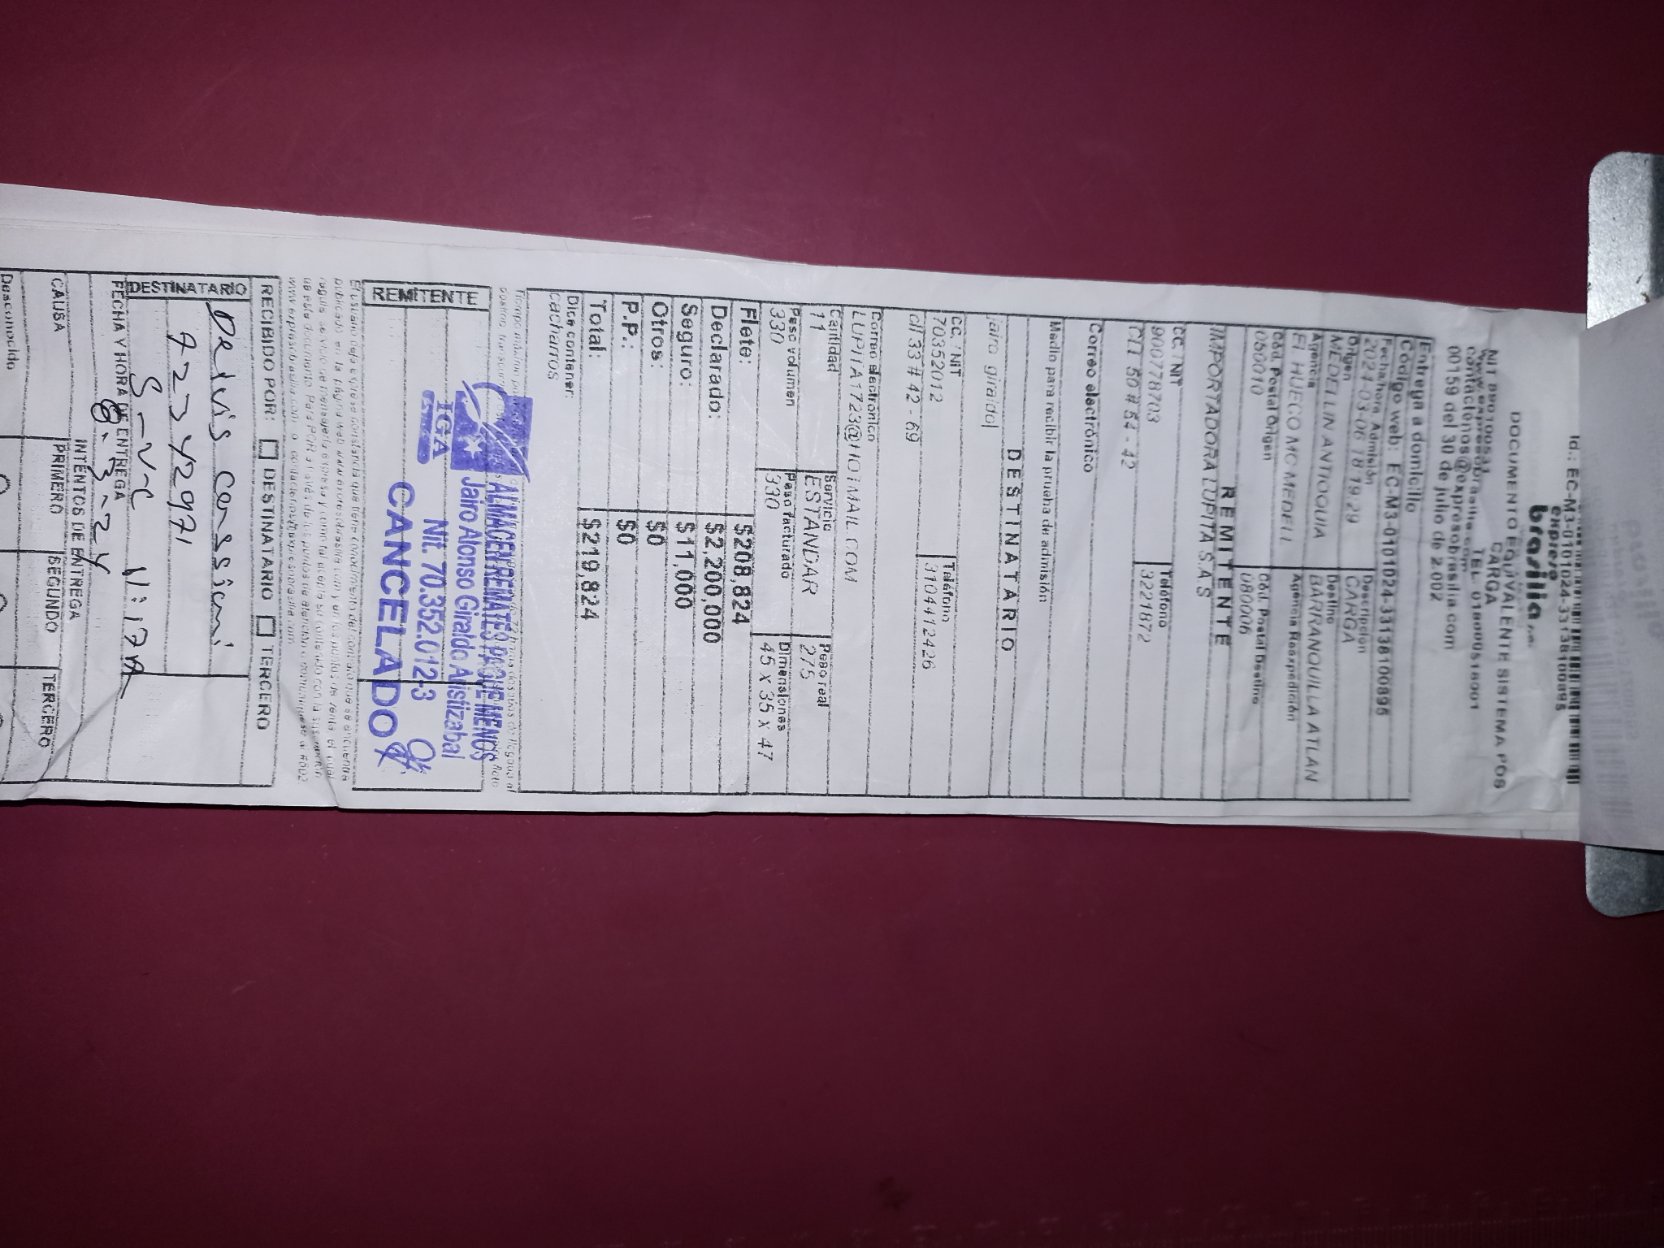 Id.: EC-M3-0101024-33138100895
expreso
brasilia
DOCUMENTO EQUIVALENTE SISTEMA POS
CARGA
TEL. 018000518001
contactenos@expresobrasilia.com
00159 del 30 de julio de 2.002
Entrega a domicilio
Código web: EC-M3-0101024-33138100895
Fecha/hora Admisión
2024-03-06 18:19:29
Descripcion
CARGA
Origen
MEDELLIN ANTIOQUIA
Destino
BARRANQUILLA ATLAN
Agencia
El HUECO MC MEDELL
Agencia Reexpedición
Cód. Postal Origen
050010
Cód. Postal Destino
080006
REMITENTE
IMPORTADORA LUPITA S.A.S
CC. / NIT
900778703
Teléfono
3221872
Cll 50 # 54 - 42
Correo electrónico
Medio para recibir la prueba de admisión
DESTINATARIO
jairo giraldo
CC. / NIT
70352012
Teléfono
3104412426
cll 33 # 42 - 69
Correo electrónico
LUPITA1723@HOTMAIL.COM
Cantidad
11
Servicio
ESTANDAR
Peso real
275
Peso volumen
330
Peso facturado
330
Dimensiones
45 X 35 X 47
Flete: $208,824
Declarado: $2,200,000
Seguro: $11,000
Otros: $0
P.P.: $0
Total: $219,824
Dice contener:
cacharros
REMITENTE
ALMACEN REMATES PAGUE MENOS
Jairo Alonso Giraldo Aristizabal
IGA
Nit. 70.352.012-3
CANCELADO
RECIBIDO POR: DESTINATARIO TERCERO
DESTINATARIO
FECHA Y HORA DE ENTREGA
8-3-24
INTENTOS DE ENTREGA
CAUSA PRIMERO SEGUNDO TERCERO
Desconocido